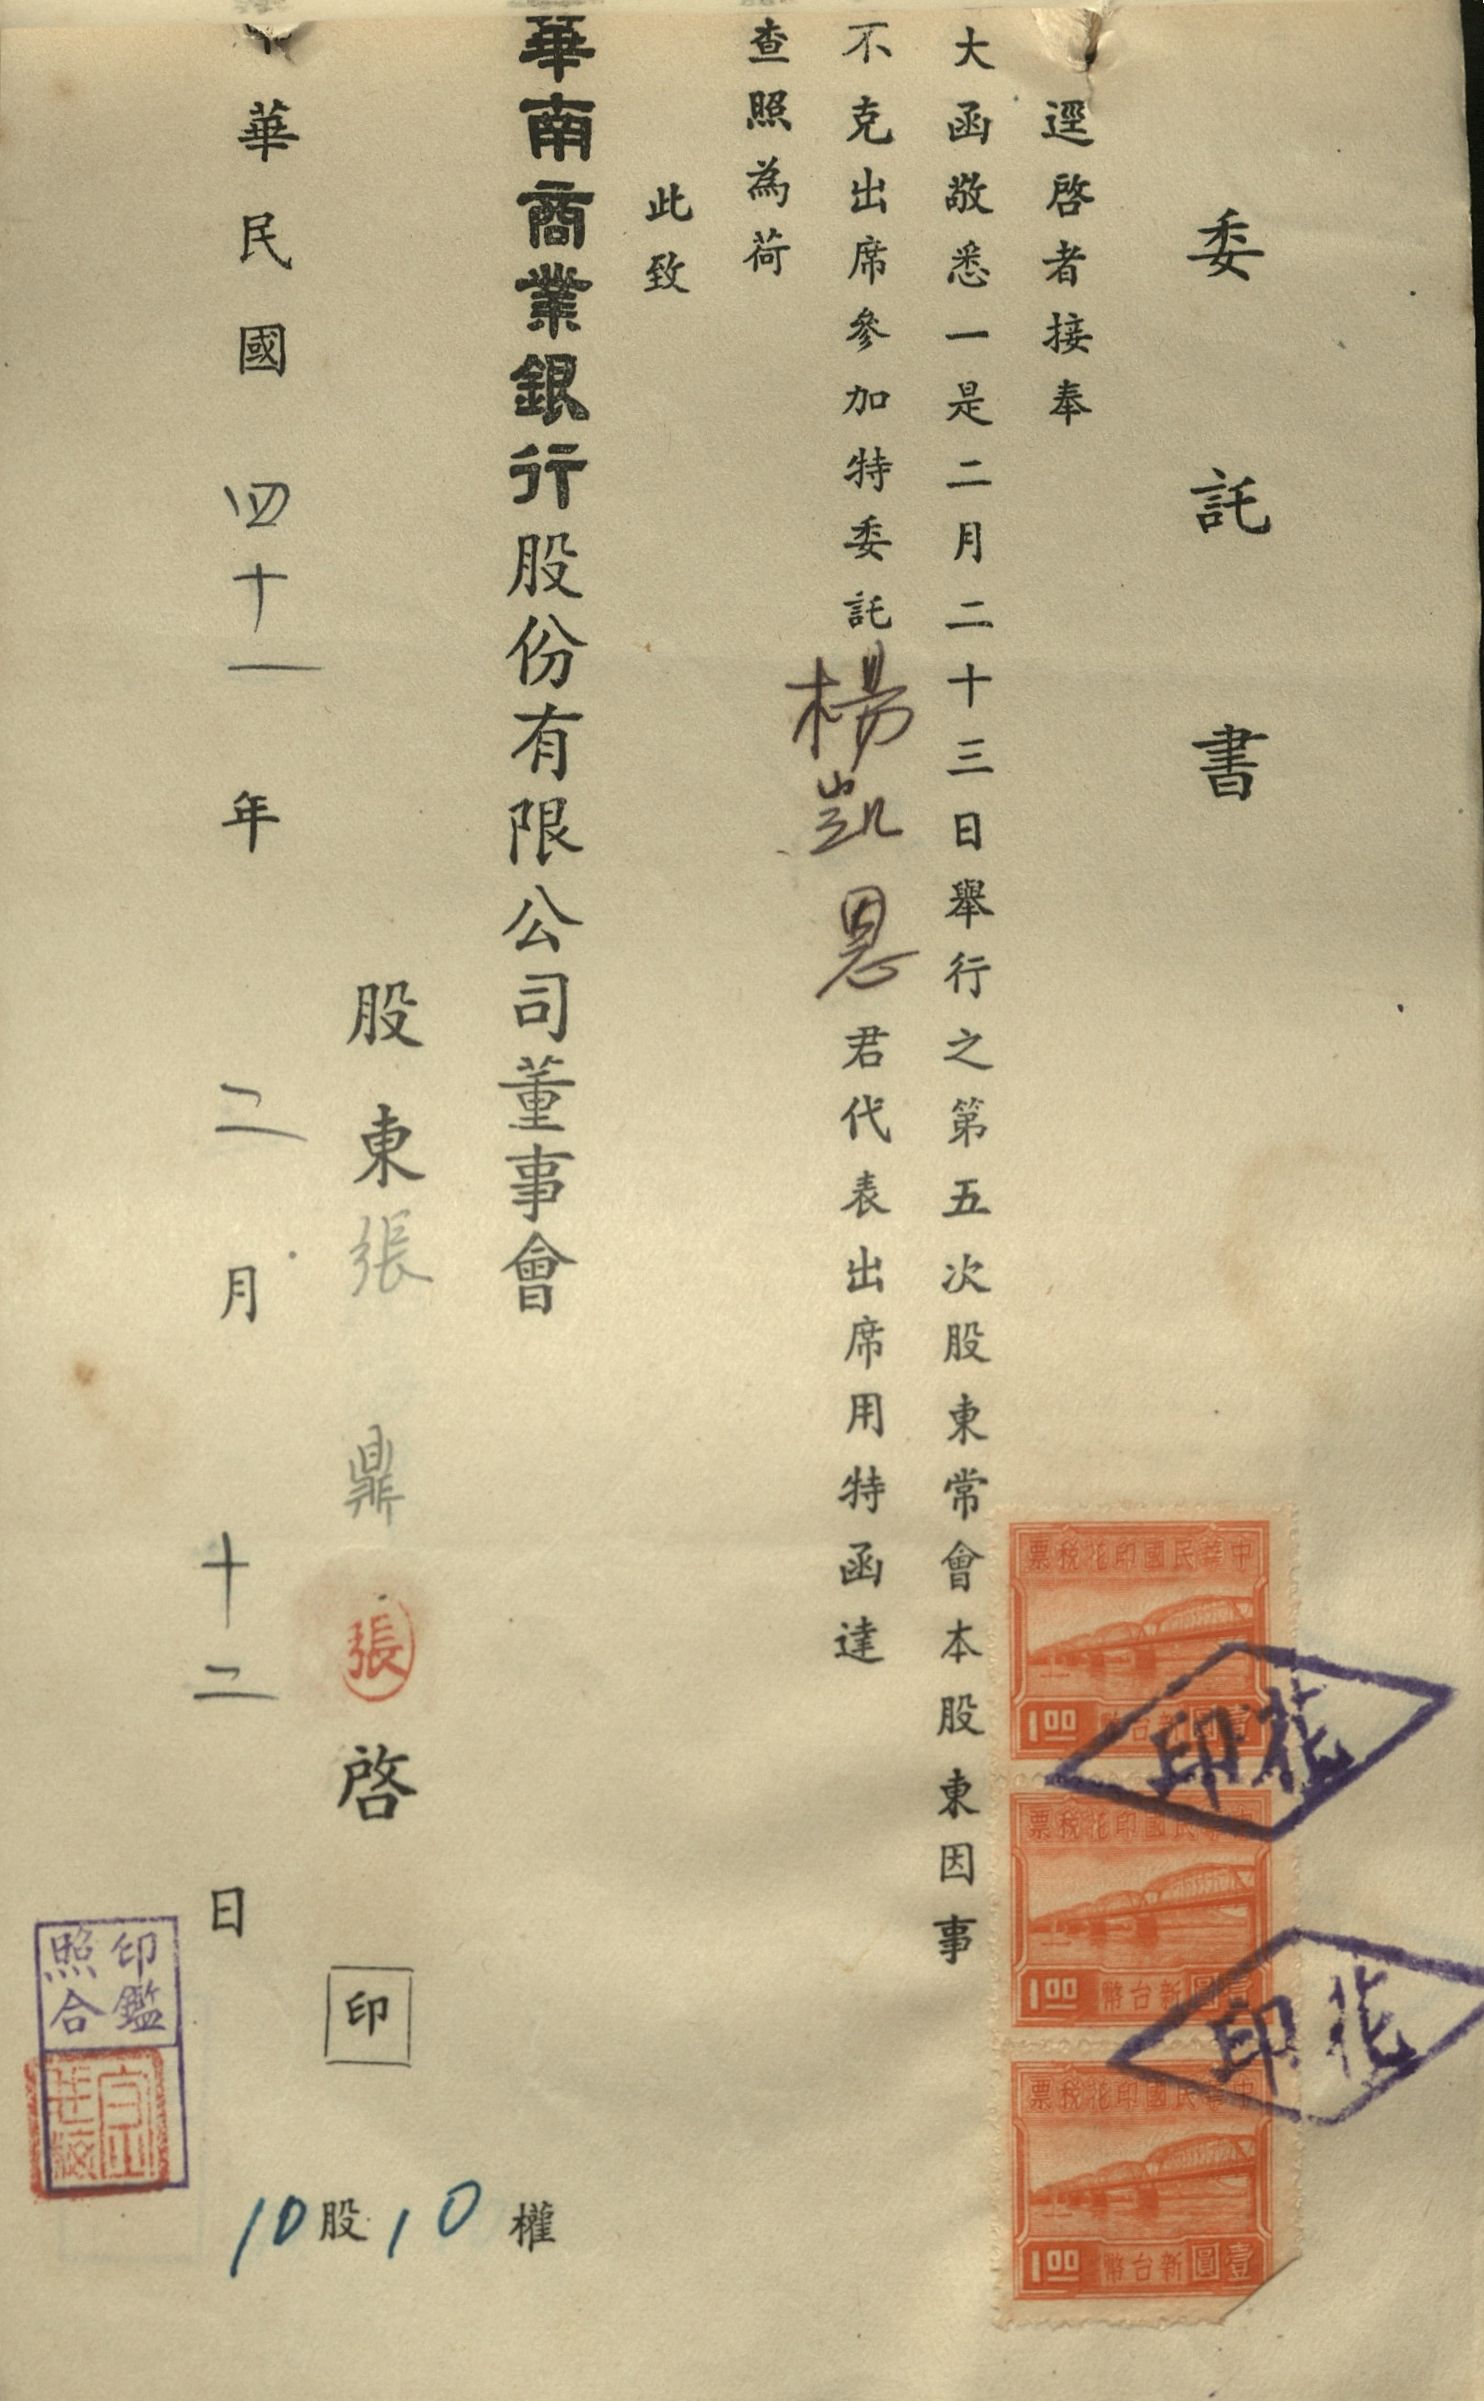 委託書
逕啓者接奉
大函敬悉一是二月二十三日舉行之第五次股東常會本股東因事
不克出席參加特委託楊凱恩君代表出席用特函達
查照為荷
此致
華南商業銀行股份有限公司董事會
股東張鼎 張 啓 印
華民國四十一年二月十二日
10股10權
印鑑
照合
中華民國印花稅票
1.00 壹圓新台幣
中華民國印花稅票
1.00 壹圓新台幣
中華民國印花稅票
1.00 壹圓新台幣
印花
印花